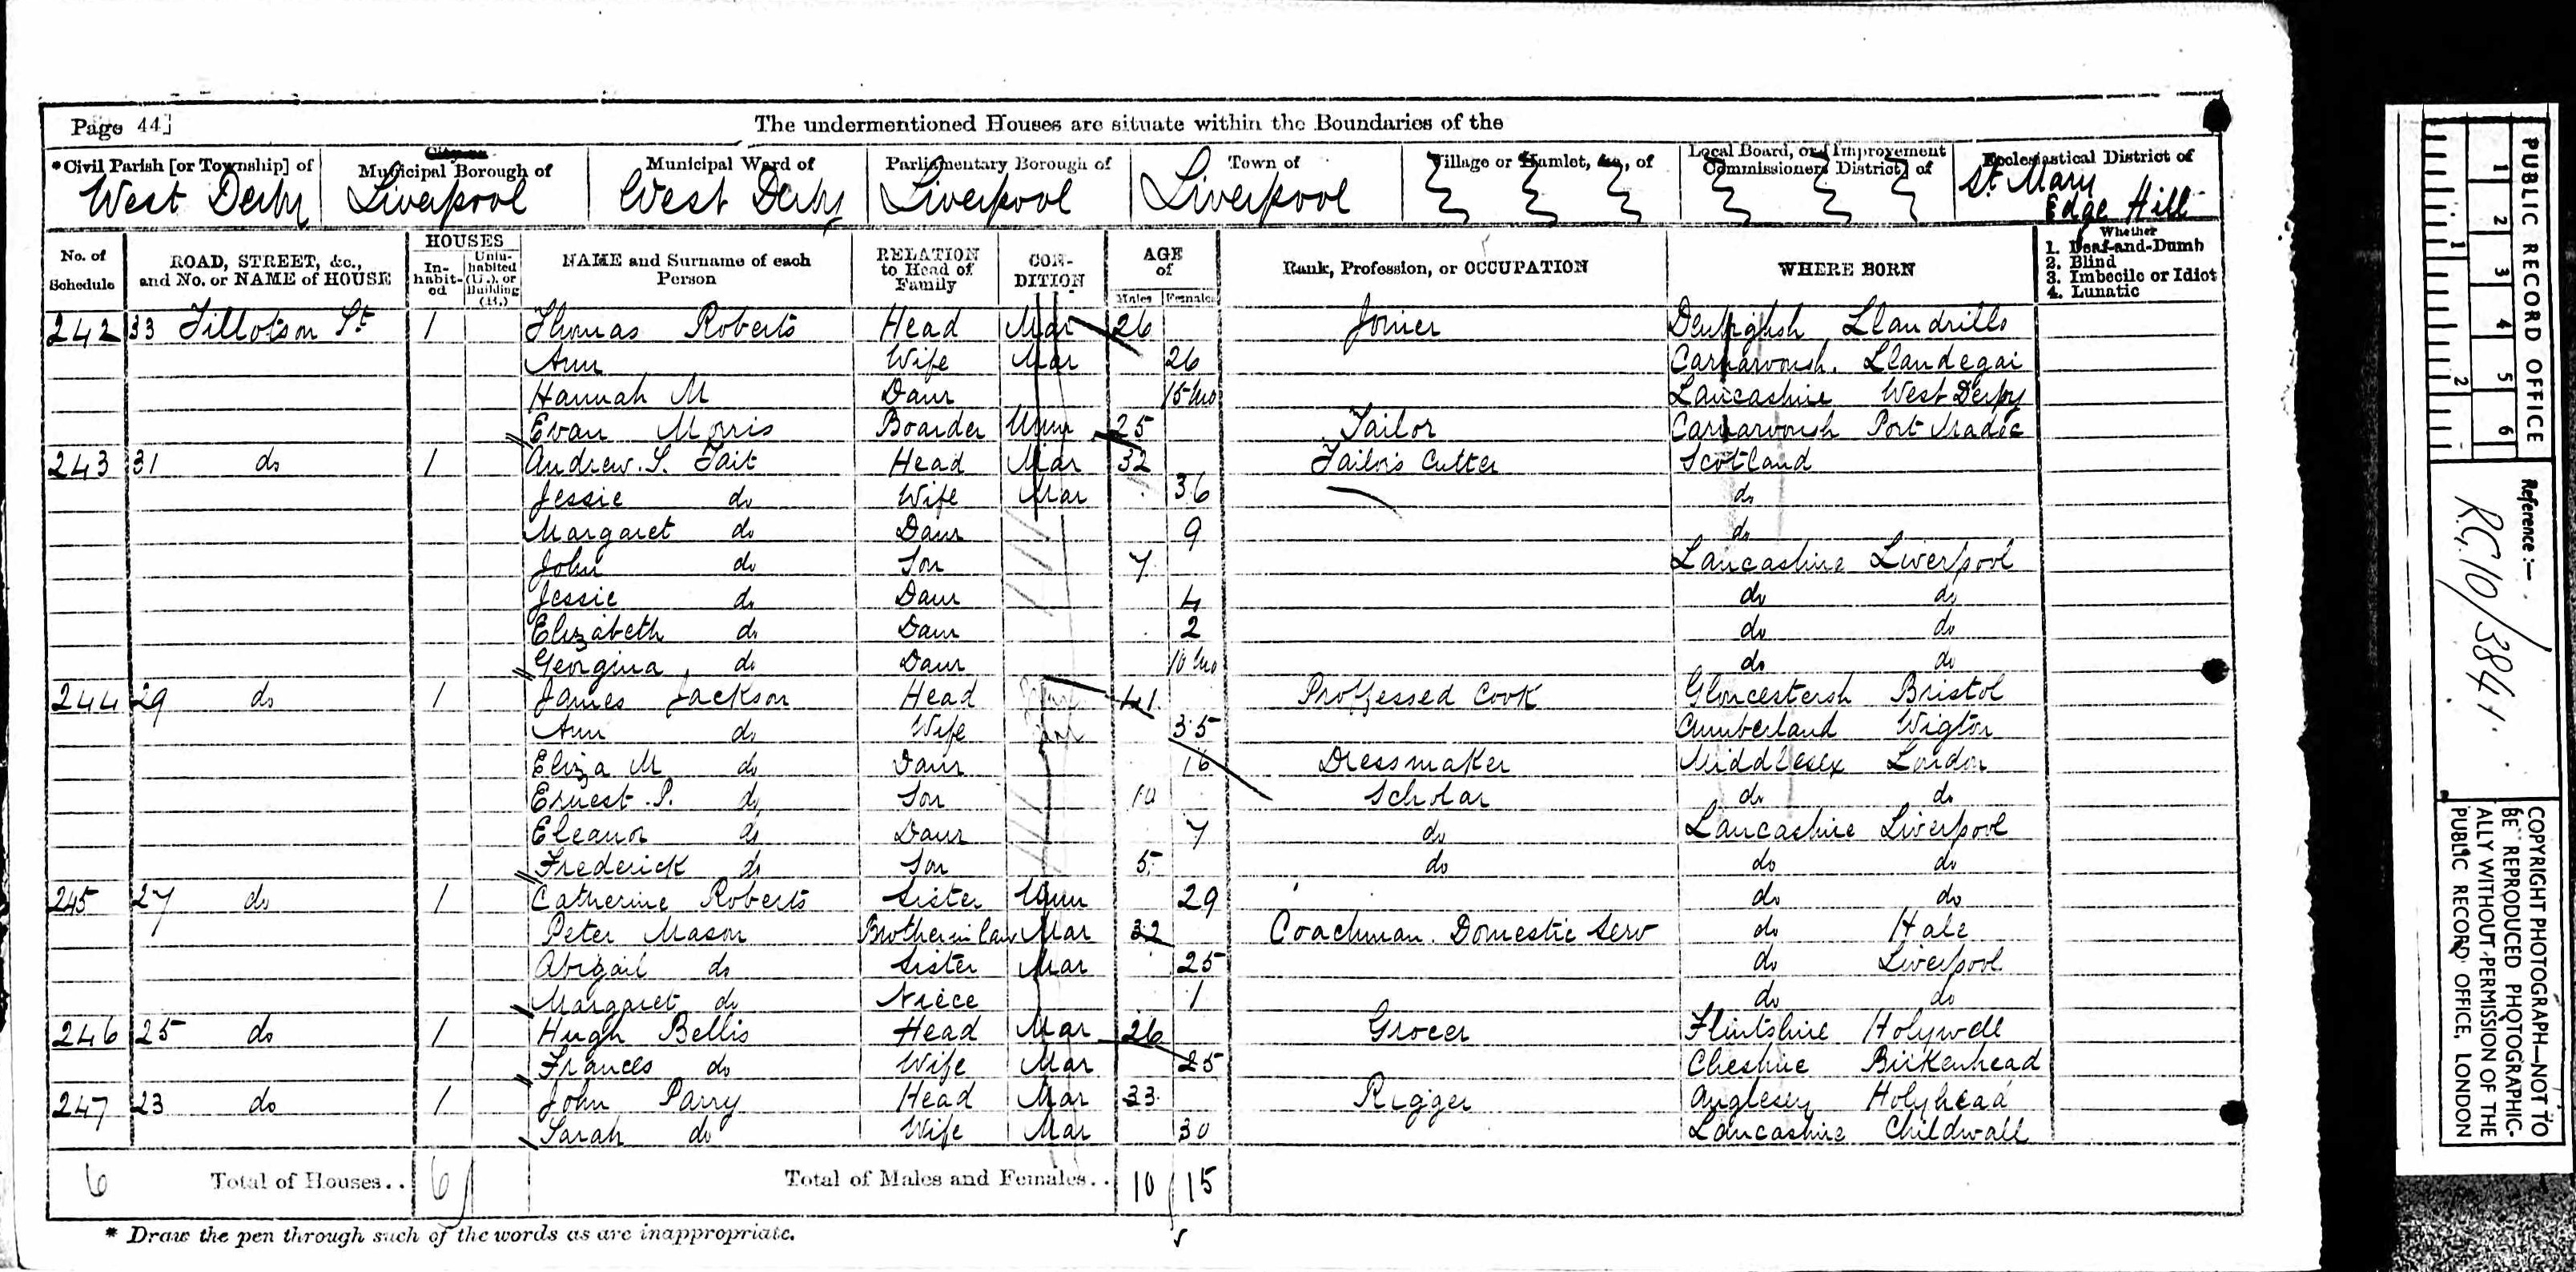 Page 44]
The undermentioned Houses are situate within the Boundaries of the
*Civil Parish [or Township] of Municipal Borough of Municipal Ward of Parliamentary Borough of Town of Village or Hamlet, &c., of Local Board, or [Improvement Commissioners District] of Ecclesiastical District of
West Derby Liverpool West Derby Liverpool Liverpool St. Mary Edge Hill
No. of Schedule ROAD, STREET, &c., and No. or NAME of HOUSE HOUSES Inhabited Uninhabited (U.), or Building (B.) NAME and Surname of each Person RELATION to Head of Family CONDITION AGE of Males Females Rank, Profession, or OCCUPATION WHERE BORN Whether 1. Deaf-and-Dumb 2. Blind 3. Imbecile or Idiot 4. Lunatic
242 33 Tillotson St 1 Thomas Roberts Head Mar 26 Joiner Denbighsh Llandrillo
Ann Wife Mar 26 Carnarvonsh. Llandegai
Hannah M Daur 15 Mo Lancashire West Derby
Evan Morris Boarder Unm 25 Tailor Carnarvonsh Port Madoc
243 31 do 1 Andrew. S. Tait Head Mar 32 Tailors Cutter Scotland
Jessie do Wife Mar 36 do
Margaret do Daur 9 do
John do Son 7 Lancashire Liverpool
Jessie do Daur 4 do do
Elizabeth do Daur 2 do do
Georgina do Daur 10 Mo do do
244 29 do 1 James Jackson Head 41 Proffessed Cook Gloucestersh Bristol
Ann do Wife 35 Cumberland Wigton
Eliza M do Daur 16 Dressmaker Middlesex London
Ernest. P. do Son 10 Scholar do do
Eleanor do Daur 7 do Lancashire Liverpool
Frederick do Son 5 do do do
245 27 do 1 Catherine Roberts Sister Unm 29 do do
Peter Mason Brother in law Mar 32 Coachman. Domestic Serv do Hale
Abigail do Sister Mar 25 do Liverpool
Margaret do Niece 1 do do
246 25 do 1 Hugh Bellis Head Mar 26 Grocer Flintshire Holywell
Frances do Wife Mar 25 Cheshire Birkenhead
247 23 do 1 John Parry Head Mar 33 Rigger Anglesey Holyhead
Sarah do Wife Mar 30 Lancashire Childwall
6 Total of Houses.. 6 Total of Males and Females.. 10 15
* Draw the pen through such of the words as are inappropriate.
PUBLIC RECORD OFFICE
1 2 3 4 5 6
1 2
Reference :-
R.G. 10/3841.
COPYRIGHT PHOTOGRAPH—NOT TO
BE REPRODUCED PHOTOGRAPHIC-
ALLY WITHOUT PERMISSION OF THE
PUBLIC RECORD OFFICE, LONDON